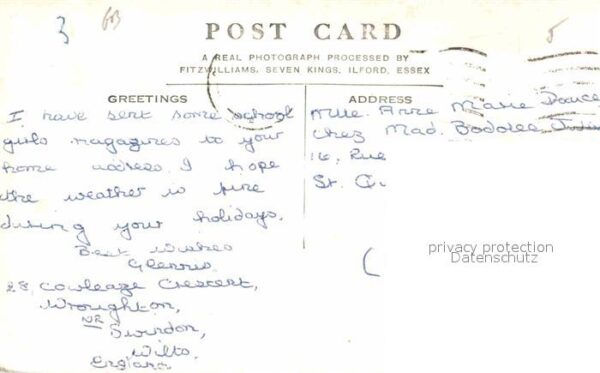 3 6B 5
POST CARD
A REAL PHOTOGRAPH PROCESSED BY
FITZWILLIAMS, SEVEN KINGS, ILFORD, ESSEX
GREETINGS
I have sent some school
girls magazines to your
home address. I hope
the weather is fine
during your holidays.
Best Wishes
Glennis.
28, Cowleaze Crescent,
Wroughton,
NR
Swindon,
Wilts,
England
ADDRESS
Mlle. Anne Marie
chez Mad.
16, Rue
St.
privacy protection
Datenschutz